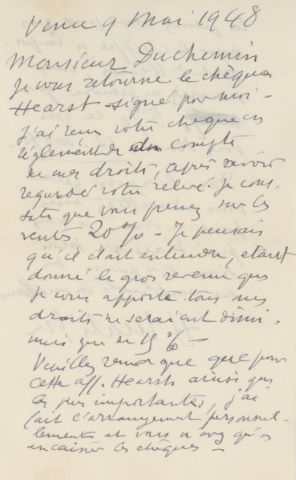 Vence 9 Mai 1948
Monsieur Duchemin
Je vous retourne le chèque
Hearst signé par moi -
J'ai reçu votre chèque en
règlement de compte
de mes droits, après avoir
regardé votre relevé. Je cons-
tate que vous prenez sur les
ventes 20% - Je pensais
qu'il était entendu, étant
donné le gros revenu que
je vous apporte tous mes
droits ne seraient dimi-
nués que de 15% -
Veuillez remarquer que pour
cette aff. Hearst ainsi que
les plus importantes, j'ai
fait l'arrangement personnel-
lement et vous n'avez qu'à
encaisser les chèques -